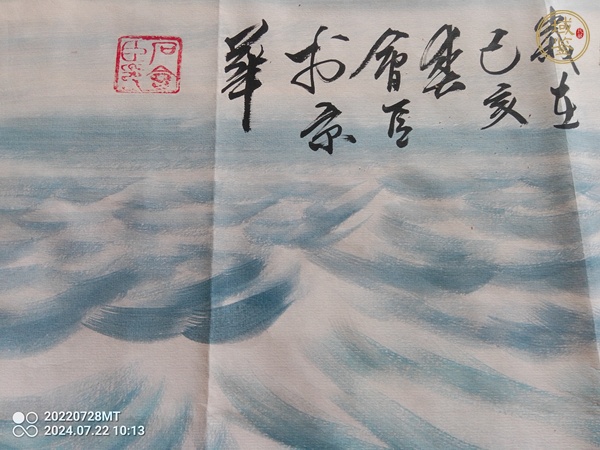 歲在
己亥
春
會臣
於京
華
20220728MT
2024.07.22 10:13